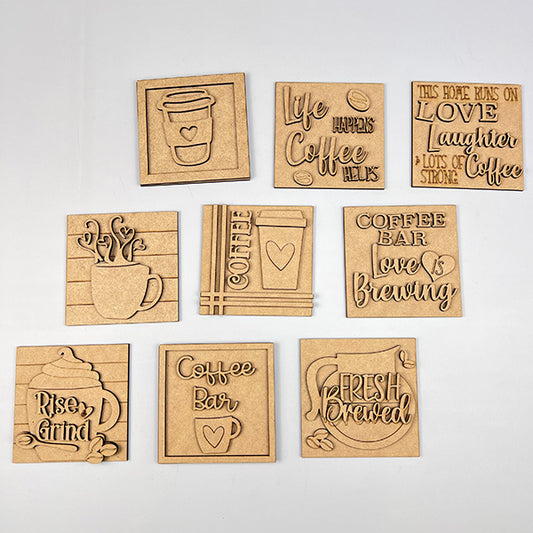 Life
HAPPENS
Coffee
HELPS
THIS HOME RUNS ON
LOVE
Laughter
& LOTS OF
STRONG Coffee
COFFEE
COFFEE
BAR
Love is
Brewing
Rise &
Grind
Coffee
Bar
FRESH
Brewed